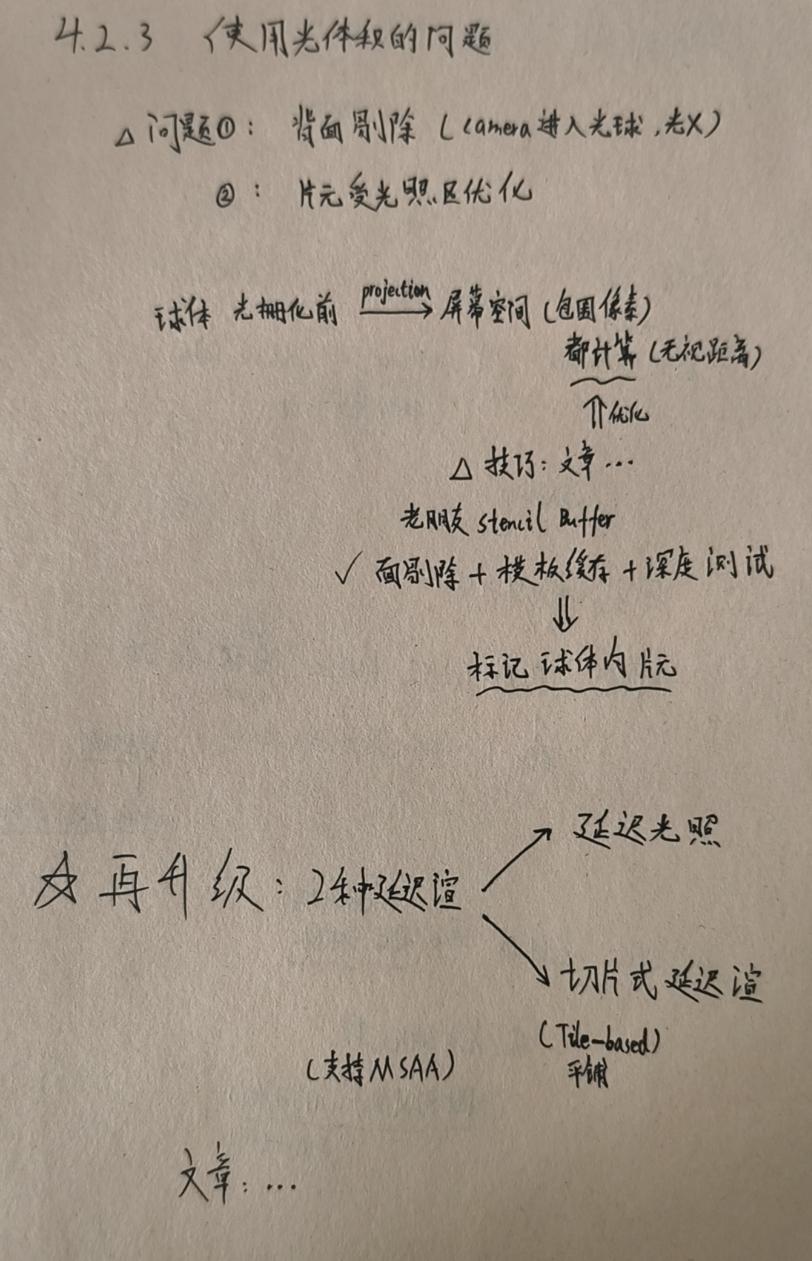 4.2.3 使用光体积的问题
△ 问题①: 背面剔除 (camera进入光球,光X)
②: 片元受光照区优化
球体 光栅化前 projection → 屏幕空间 (包围像素)
都计算 (无视距离)
⇑优化
△ 技巧: 文章…
老朋友 stencil Buffer
✓ 面剔除 + 模板缓存 + 深度测试
⇓
标记 球体内 片元
☆ 再升级: 2种延迟渲
延迟光照
切片式 延迟渲
(Tile-based)
平铺
(支持MSAA)
文章: …